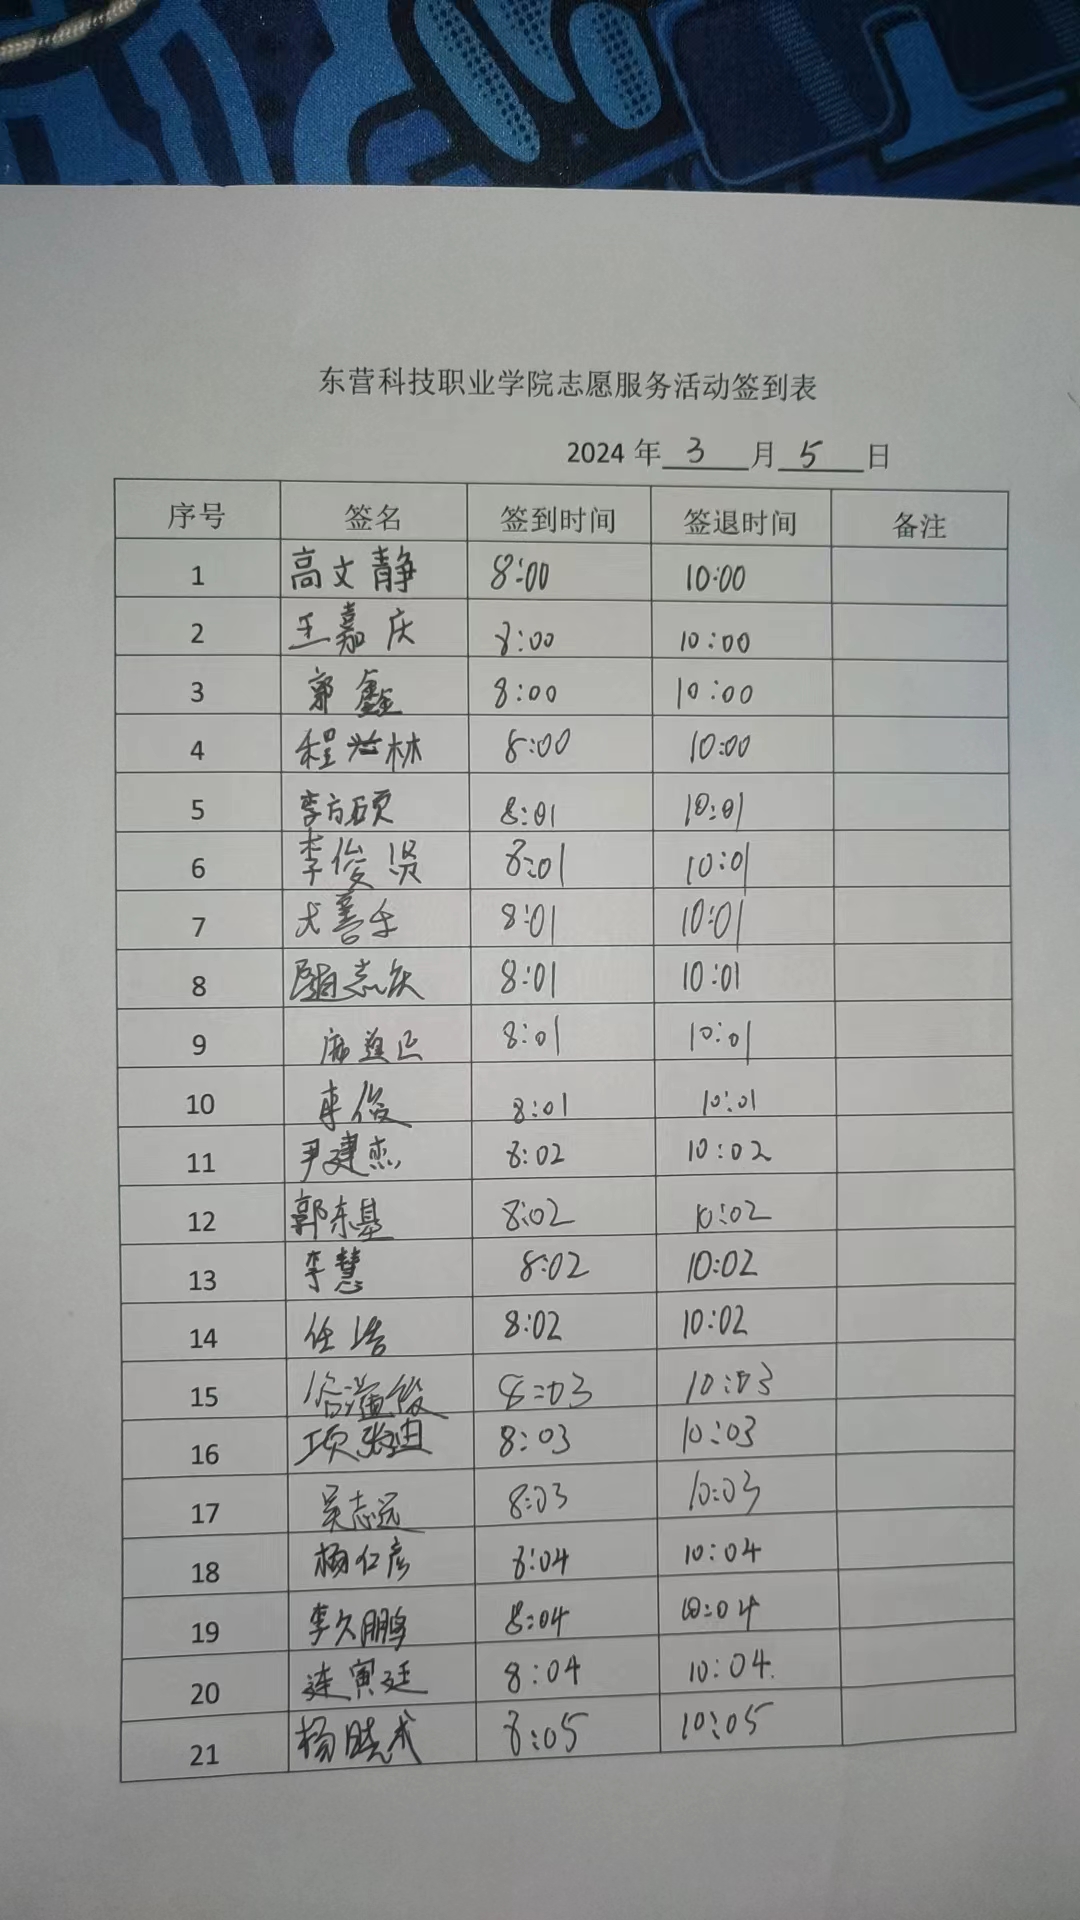 东营科技职业学院志愿服务活动签到表
2024 年 3 月 5 日
序号 签名 签到时间 签退时间 备注
1 高文静 8:00 10:00
2 王嘉庆 8:00 10:00
3 郭鑫 8:00 10:00
4 程兴林 8:00 10:00
5 李方硕 8:01 10:01
6 李俊贤 8:01 10:01
7 尤善乐 8:01 10:01
8 志庆 8:01 10:01
9 8:01 10:01
10 李俊 8:01 10:01
11 尹建杰 8:02 10:02
12 郭东基 8:02 10:02
13 李慧 8:02 10:02
14 任浩 8:02 10:02
15 8:03 10:03
16 项张迪 8:03 10:03
17 吴志远 8:03 10:03
18 杨仁彦 8:04 10:04
19 李久鹏 8:04 10:04
20 连寅廷 8:04 10:04
21 杨晓 8:05 10:05